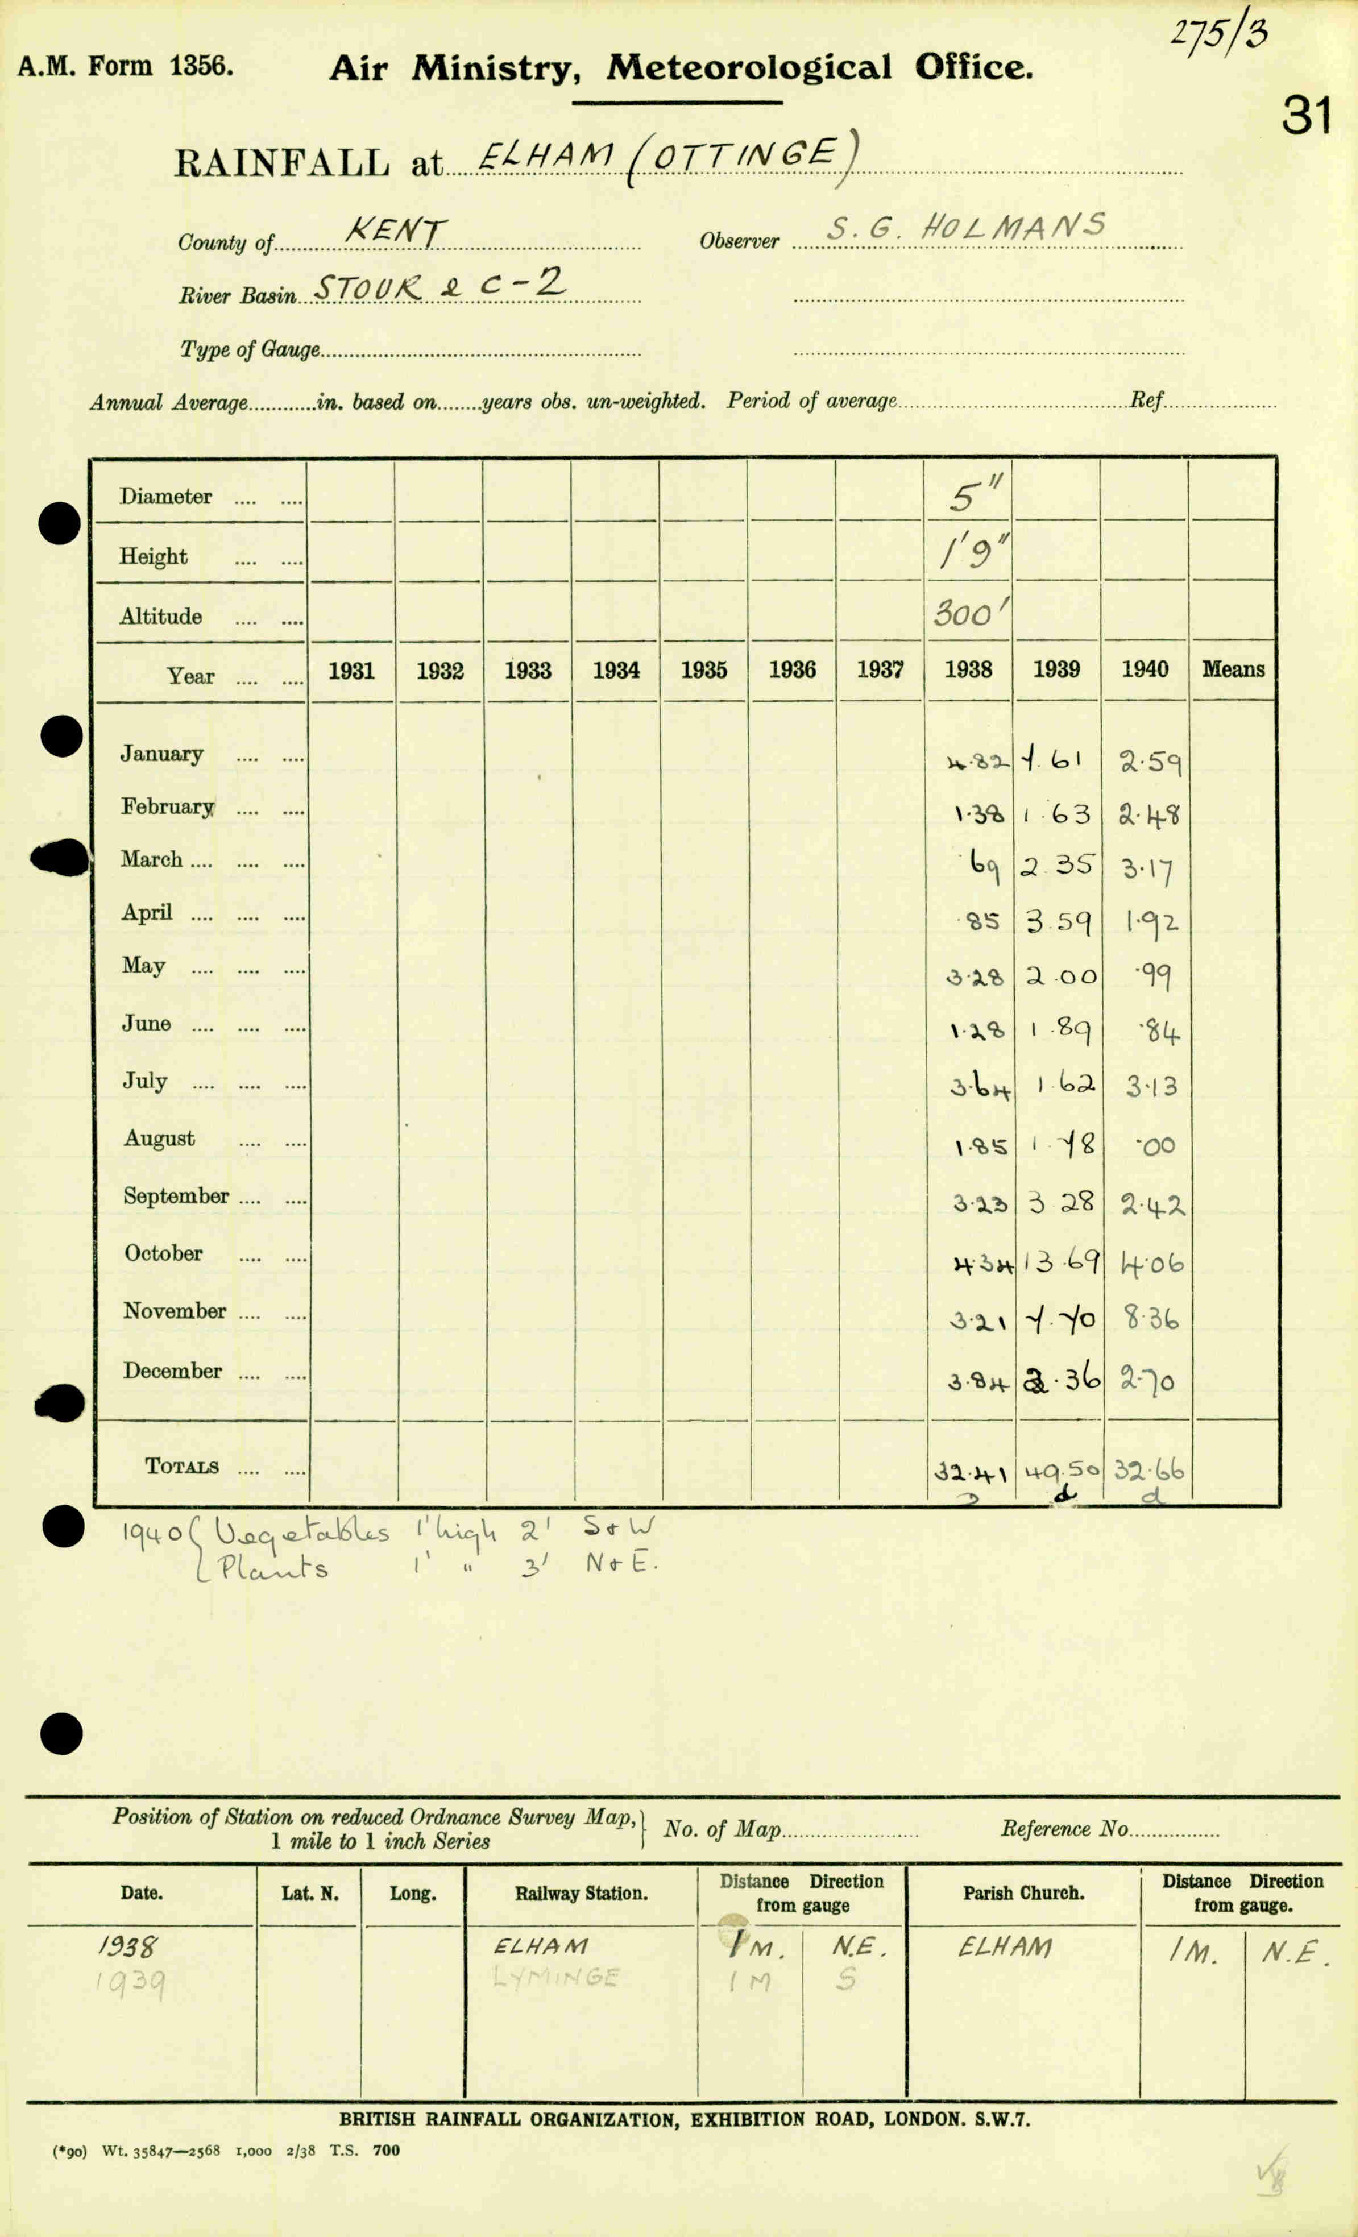 275/3
A.M. Form 1356. Air Ministry, Meteorological Office.
31
RAINFALL at ELHAM (OTTINGE)
County of KENT Observer S. G. HOLMANS
River Basin STOUR & C-2
Type of Gauge
Annual Average in. based on years obs. un-weighted. Period of average Ref.
Diameter 5"
Height 1'9"
Altitude 300'
Year 1931 1932 1933 1934 1935 1936 1937 1938 1939 1940 Means
January 4.82 7.61 2.59
February 1.38 1.63 2.48
March .69 2.35 3.17
April .85 3.59 1.92
May 3.28 2.00 .99
June 1.28 1.89 .84
July 3.64 1.62 3.13
August 1.85 1.78 .00
September 3.23 3 28 2.42
October 4.34 13.69 4.06
November 3.21 7.70 8.36
December 3.84 2.36 2.70
TOTALS 32.41 49.50 32.66
d d
1940 { Vegetables 1' high 2' S & W
Plants 1' " 3' N & E.
Position of Station on reduced Ordnance Survey Map, 1 mile to 1 inch Series } No. of Map Reference No.
Date. Lat. N. Long. Railway Station. Distance Direction from gauge Parish Church. Distance Direction from gauge.
1938 ELHAM 1 M. N.E. ELHAM 1 M. N.E.
1939 LYMINGE 1 M S
BRITISH RAINFALL ORGANIZATION, EXHIBITION ROAD, LONDON. S.W.7.
(*90) Wt. 35847—2568 1,000 2/38 T.S. 700